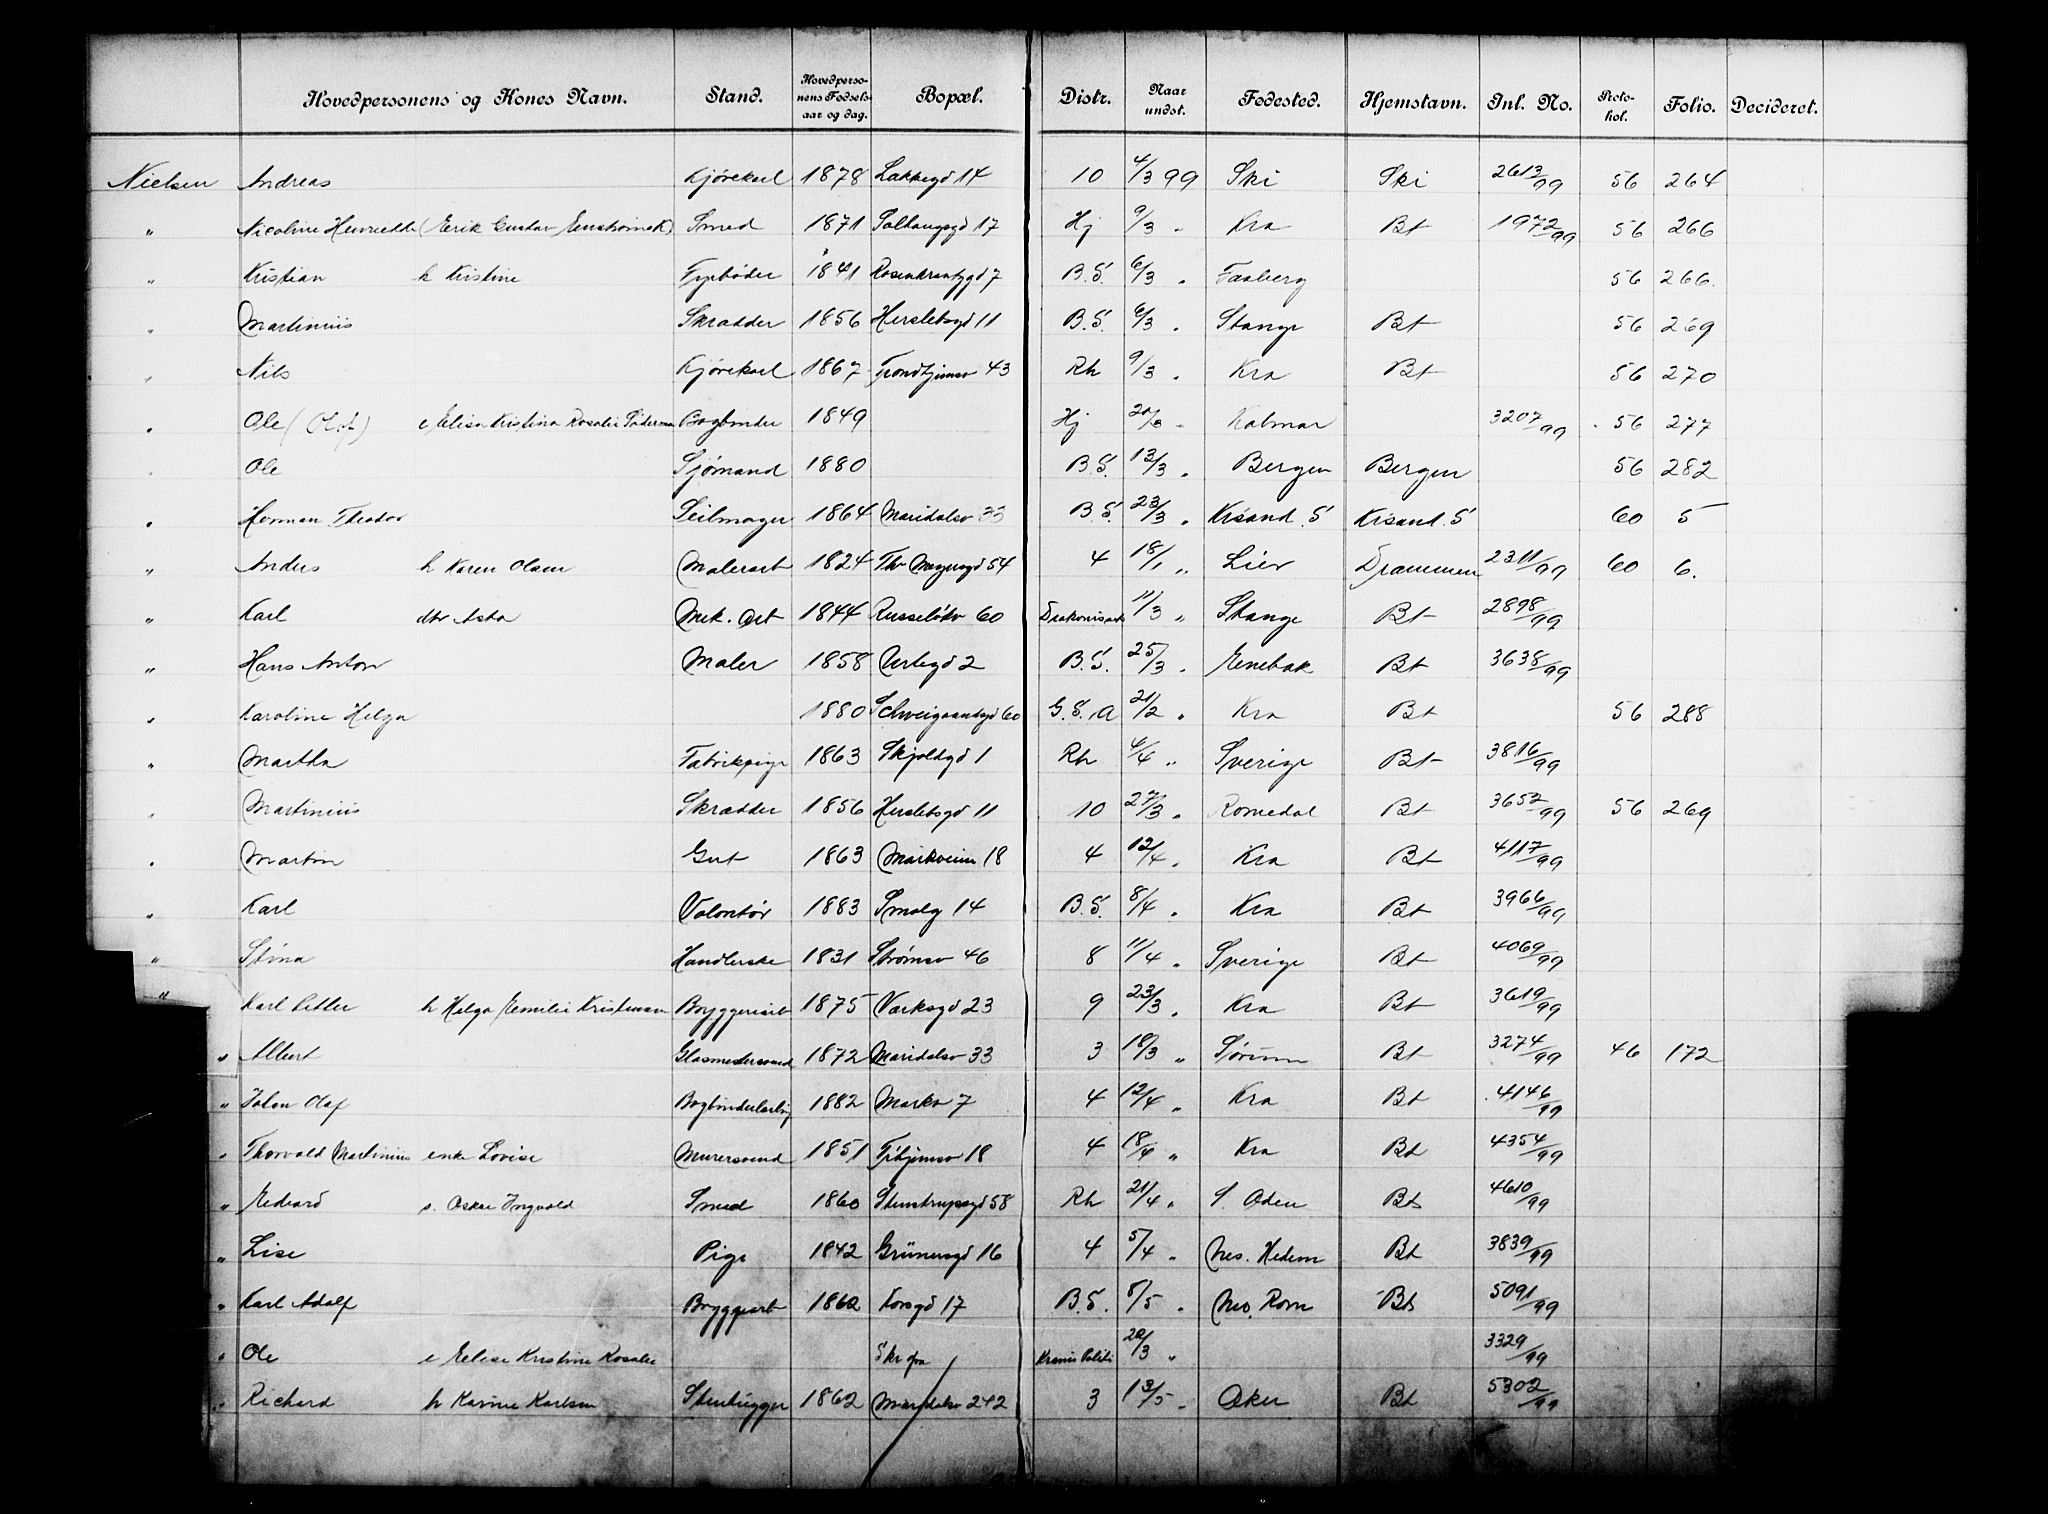 Hovedpersonens og Kones Navn. Stand. Hovedpersonens Fødselsaar og dag. Bopæl. Distr. Naar undst. Fødested. Hjemstavn. Inl. No. Protokol. Folio. Decideret.
Nielsen Andreas Kjørekarl 1878 Lakkegd 14 10 4/3 99 Ski Ski 2613/99 56 264
" Nicoline Henriette (Erik Gustav K) Smed 1871 17 Hj 9/3 " Kra Bt 1972/99 56 266
" Kristian h Kristine Fyrbøder 1841 Rosenkrantzgd 7 B.S. 6/3 " Faaberg 56 266.
" Martinius Skrædder 1856 Herslebsgd 11 B.S. 6/3 " Stange Bt 56 269
" Nils Kjørekarl 1867 Trondhjemsv 43 Rh 9/3 " Kra Bt 56 270
" Ole (Olof) e Elise Kristina Rosalie Bogbinder 1849 Hj " Kalmar 3207/99 56 277
" Ole Sjømand 1880 B.S. 13/3 " Bergen Bergen 56 282
" Herman Theodor Seilmager 1864 Maridalsv 33 B.S. 23/3 " Krsand. S Krsand. S 60 5
" Anders h Karen Olsen Malerarb 1824 Thv Meyersgd 54 4 18/1 " Lier Drammen 2311/99 60 6.
" Karl dtr Asta Mek. Arb 1844 Russeløkv 60 11/3 " Stange Bt 2898/99
" Hans Anton Maler 1858 Urtegd 2 B.S. 25/3 " Enebak Bt 3638/99
" Karoline Helga 1880 Schweigaardsgd 60 G.S. A 21/2 " Kra Bt 56 288
" Martha Fabrikpige 1863 Skjoldgd 1 Rh 4/4 " Sverige Bt 3816/99
" Martinius Skrædder 1856 Herslebsgd 11 10 27/3 " Romedal Bt 3652/99 56 269
" Martin Gut 1863 Markveien 18 4 12/4 " Kra Bt 4117/99
" Karl Volontør 1883 Smalg 14 B.S. 8/4 " Kra Bt 3966/99
" Stina Handlerske 1831 Strømsv 46 8 11/4 " Sverige Bt 4069/99
" Karl Petter h Helga Emilie Kristensen Bryggeriarb 1875 Varksgd 23 9 23/3 " Kra Bt 3619/99
" Albert Glasmestersvend 1872 Maridalsv 33 3 18/3 " Sørum Bt 3274/99 46 172
" Johan Olaf 1882 Markv 7 4 12/4 " Kra Bt 4146/99
" Thorvald Martinius enke Lovise Murersvend 1851 Tr.hjemsv 18 4 18/4 " Kra Bt 4354/99
" Edvard s. Oskar Ingvald Smed 1860 Stenstrupsgd 58 Rh 21/4 " S. Oden Bt 4610/99
" Lise Pige 1842 Grünersgd 16 4 5/4 " Nes. Hedem Bt 3839/99
" Karl Adolf Bryggeriarb 1862 Korsgd 17 B.S. 8/5 " Nes. Rom Bt 5091/99
" Ole e Elise Kristine Rosalie 20/3 " 3329/99
" Richard h Karine Karlsen Stenhugger 1862 Maridalsv 242 3 13/5 " Aker Bt 5302/99